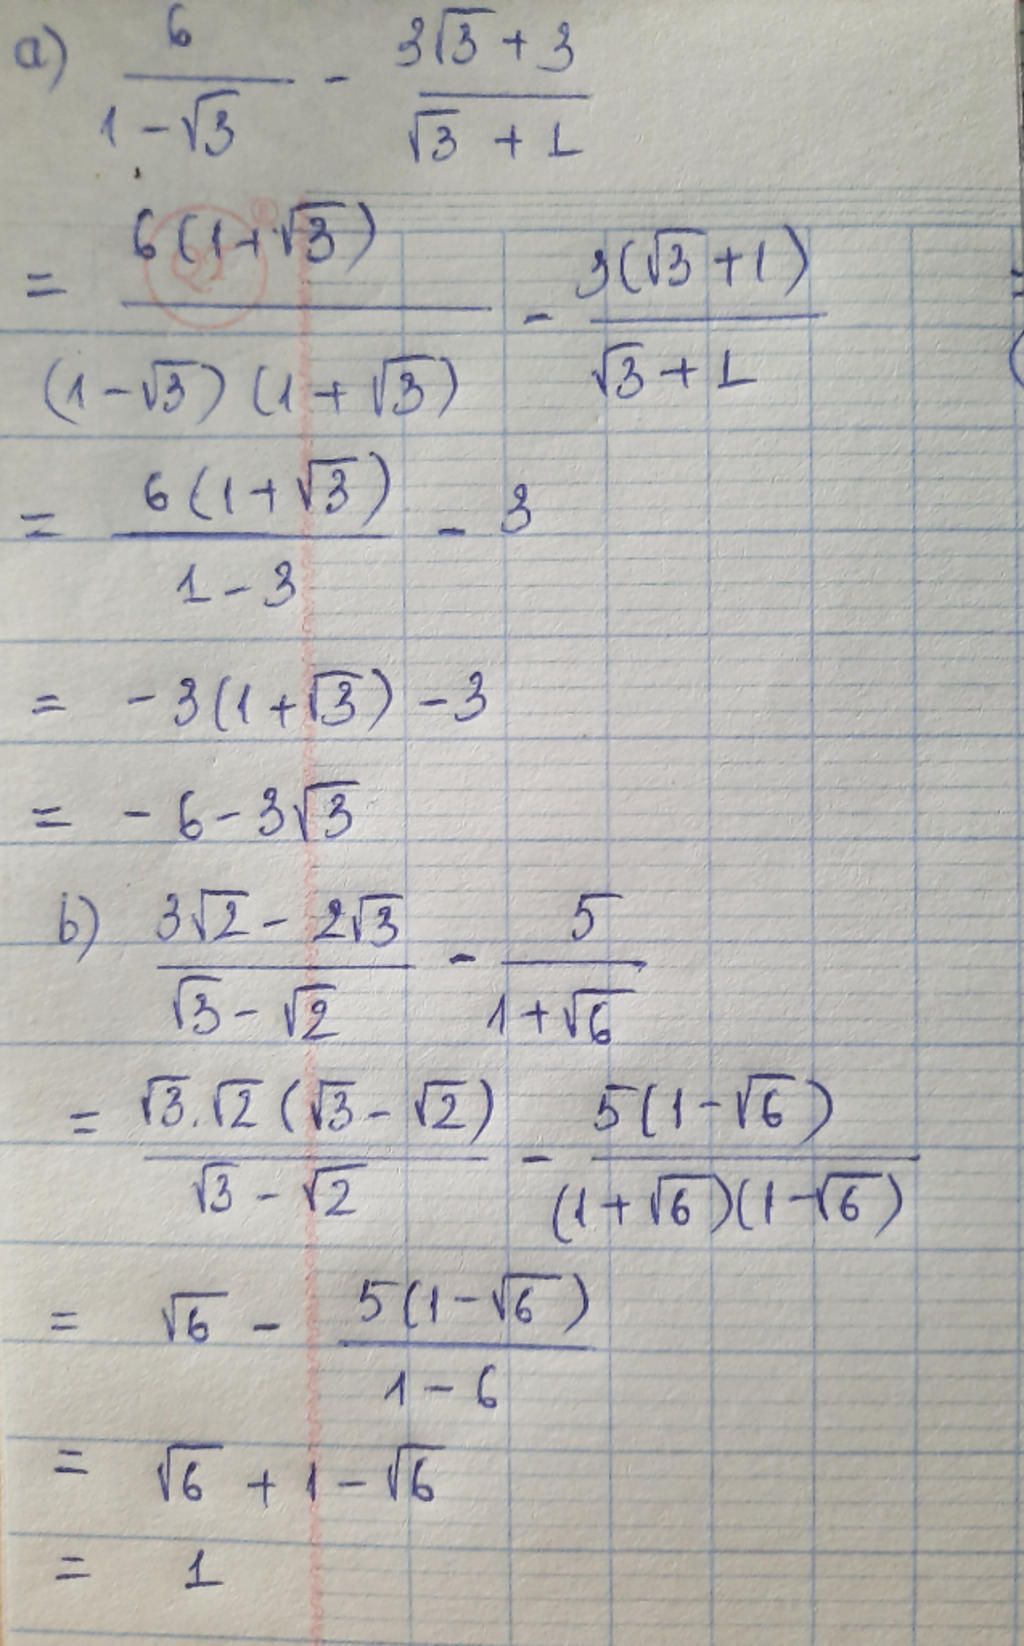 a) 6/(1-√3) - (3√3+3)/(√3+1)
= 6(1+√3)/((1-√3)(1+√3)) - 3(√3+1)/(√3+1)
= 6(1+√3)/(1-3) - 3
= -3(1+√3) -3
= -6-3√3
b) (3√2-2√3)/(√3-√2) - 5/(1+√6)
= √3.√2(√3-√2)/(√3-√2) - 5(1-√6)/((1+√6)(1-√6))
= √6 - 5(1-√6)/(1-6)
= √6 + 1 - √6
= 1